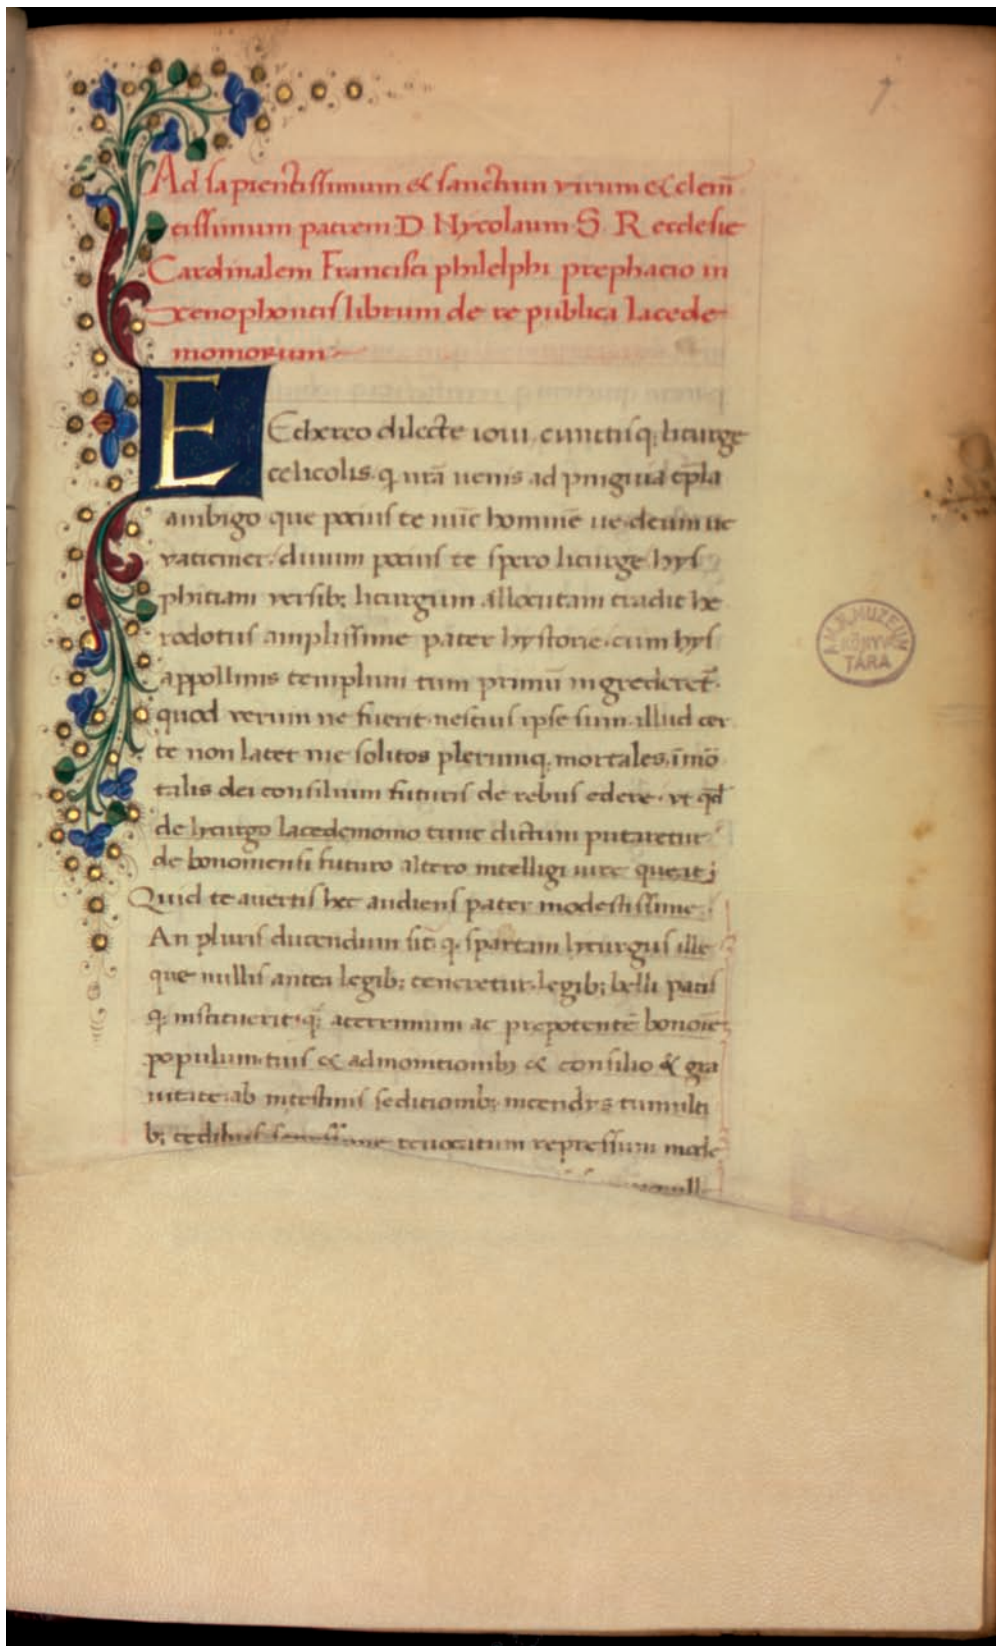 7
Ad sapientissimum & sanctum virum & clem̄
tissimum patrem D Nycolaum S. R ecclesie
Cardinalem Francisci philelphi prephacio in
xenophontis librum de re publica lacede
moniorum
E Ethereo dilecte ioui, cunctisq; licurge
celicolis. q nr̄a uenis ad pinguia tēpla
ambigo que pocius te nūc hominē ue deum ue
vaticiner. diuum pocius te spero licurge hys
phitiam versib; licurgum allocutam tradit he
rodotus amplissime pater hystorie. cum hys
appollinis templum tum primū ingrederet̄.
quod verum ne fuerit nescius ipse sum. illud cer
te non latet me solitos plerumq. mortales īmo
talis dei consilium futuris de rebus edere. vt qd̄
de lycurgo lacedemonio tunc dictum putaretur
de bononiensi futuro altero intelligi iure queat;
Quid te auertis hec audiens pater modestissime.
An pluris ducendum sit q. spartam lycurgus ille
que nullis antea legib; teneretur. legib; belli pacis
q; instituerit. q; aternum ac prepotentē bonoīe
populum. tuis & admonitionib; & consilio & gra
uitate. ab intestinis seditionib; incendys tumulti
b; cedibus reuocatum repressum mode
AM.N.MUZEUM
KÖNYV
TÁRA